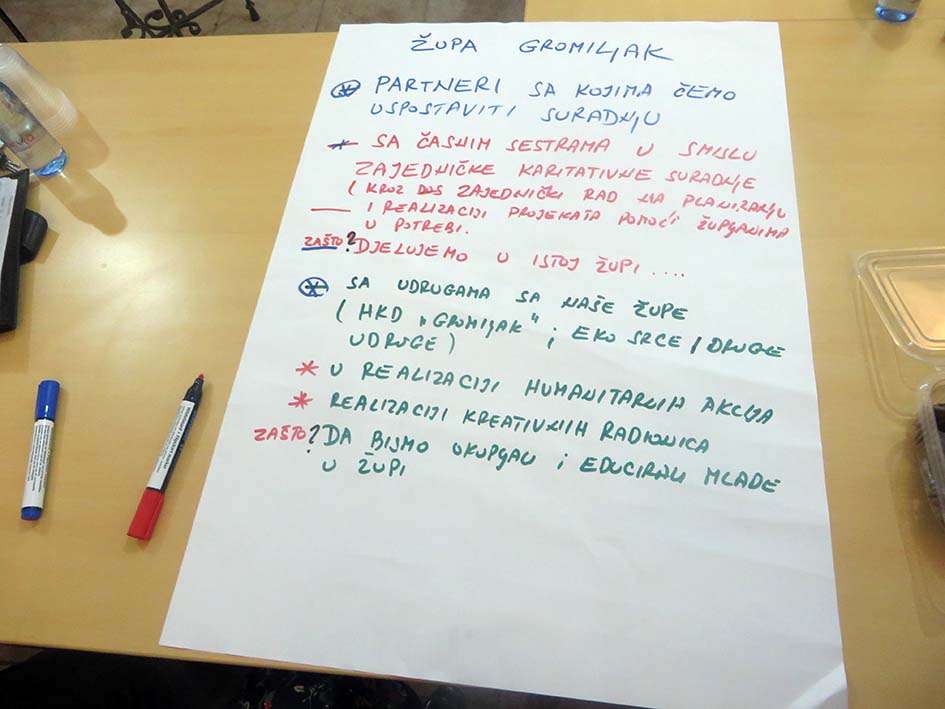 ŽUPA GROMILJAK
PARTNERI SA KOJIMA ČEMO
USPOSTAVITI SURADNJU
SA ČASNIM SESTRAMA U SMISLU
ZAJEDNIČKE KARITATIVNE SURADNJE
( KROZ ZAJEDNIČKI RAD NA PLANIRANJU
I REALIZACIJI PROJEKATA POMOĆI ŽUPLJANIMA
U POTREBI.
ZAŠTO? DJELUJEMO U ISTOJ ŽUPI ....
SA UDRUGAMA SA NAŠE ŽUPE
( HKD "GROMILJAK" ; EKO SRCE / DRUGE
UDRUGE )
* U REALIZACIJI HUMANITARNIH AKCIJA
* REALIZACIJI KREATIVNIH RADIONICA
ZAŠTO? DA BISMO OKUPLJALI I EDUCIRALI MLADE
U ŽUPI